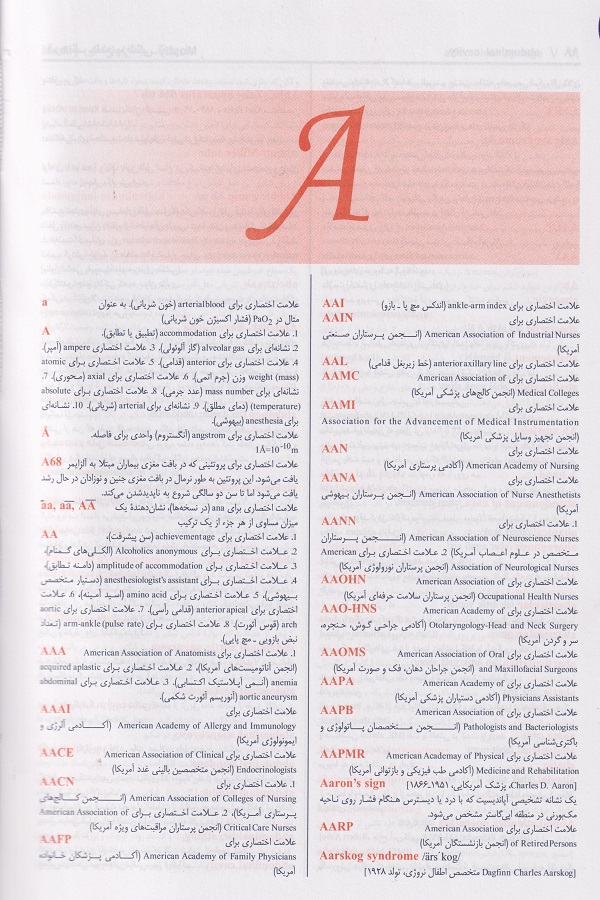 A
a
علامت اختصاری برای arterial blood (خون شریانی). به عنوان
مثال در PaO2 (فشار اکسیژن خون شریانی)
A
1. علامت اختصاری برای accommodation (تطبیق یا تطابق).
2. نشانه‌ای برای alveolar gas (گاز آلوئولی). 3. علامت اختصاری ampere (آمپر).
4. علامت اختصاری برای anterior (قدامی). 5. علامت اختصاری برای atomic
weight (mass) وزن (جرم اتمی). 6. علامت اختصاری برای axial (محوری). 7.
نشانه‌ای برای mass number (عدد جرمی). 8. علامت اختصاری برای absolute
(temperature) (دمای مطلق). 9. نشانه‌ای برای arterial (شریانی). 10. نشانه‌ای
برای anesthesia (بیهوشی).
Å
علامت اختصاری برای angstrom (آنگستروم) واحدی برای فاصله.
1Å=10-10m
A68
علامت اختصاری برای پروتئینی که در بافت مغزی بیماران مبتلا به آلزایمر
یافت می‌شود. این پروتئین به طور نرمال در بافت مغزی جنین و نوزادان در حال رشد
یافت می‌شود اما تا سن دو سالگی شروع به ناپدیدشدن می‌کند.
a̅a̅, aa̅, A̅A̅
علامت اختصاری برای ana (در نسخه‌ها)، نشان‌دهندۀ یک
میزان مساوی از هر جزء از یک ترکیب
AA
1. علامت اختصاری برای achievement age (سن پیشرفت)،
2. علامت اختصاری برای Alcoholics anonymous (الکلی‌های گمنام)،
3. علامت اختصاری برای amplitude of accommodation (دامنه تطابق)،
4. علامت اختصاری برای anesthesiologist's assistant (دستیار متخصص
بیهوشی)، 5. علامت اختصاری برای amino acid (اسید آمینه)، 6. علامت
اختصاری برای anterior apical (قدامی رأسی). 7. علامت اختصاری برای aortic
arch (قوس آئورت). 8. علامت اختصاری برای arm-ankle (pulse rate) (تعداد
نبض بازویی ـ مچ پایی).
AAA
1. علامت اختصاری برای American Association of Anatomists
(انجمن آناتومیست‌های آمریکا)، 2. علامت اختصاری برای acquired aplastic
anemia (آنمی آپلاستیک اکتسابی). 3. علامت اختصاری برای abdominal
aortic aneurysm (آنوریسم آئورت شکمی).
AAAI
علامت اختصاری برای
American Academy of Allergy and Immunology (آکادمی آلرژی و
ایمونولوژی آمریکا)
AACE
علامت اختصاری برای American Association of Clinical
Endocrinologists (انجمن متخصصین بالینی غدد آمریکا)
AACN
1. علامت اختصاری برای
American Association of Colleges of Nursing (انجمن کالج‌های
پرستاری آمریکا)، 2. علامت اختصاری برای American Association of
Critical Care Nurses (انجمن پرستاران مراقبت‌های ویژه آمریکا)
AAFP
علامت اختصاری برای
American Academy of Family Physicians (آکادمی پزشکان خانواده
آمریکا)
AAI
علامت اختصاری برای ankle-arm index (اندکس مچ پا ـ بازو)
AAIN
علامت اختصاری برای
American Association of Industrial Nurses (انجمن پرستاران صنعتی
آمریکا)
AAL
علامت اختصاری برای anterior axillary line (خط زیربغل قدامی)
AAMC
علامت اختصاری برای American Association of
Medical Colleges (انجمن کالج‌های پزشکی آمریکا)
AAMI
علامت اختصاری برای
Association for the Advancement of Medical Instrumentation
(انجمن تجهیز وسایل پزشکی آمریکا)
AAN
علامت اختصاری برای
American Academy of Nursing (آکادمی پرستاری آمریکا)
AANA
علامت اختصاری برای
American Association of Nurse Anesthetists (انجمن پرستاران بیهوشی
آمریکا)
AANN
1. علامت اختصاری برای
American Association of Neuroscience Nurses (انجمن پرستاران
متخصص در علوم اعصاب آمریکا) 2. علامت اختصاری برای American
Association of Neurological Nurses (انجمن پرستاران نورولوژی آمریکا)
AAOHN
علامت اختصاری برای American Association of
Occupational Health Nurses (انجمن پرستاران سلامت حرفه‌ای آمریکا)
AAO-HNS
علامت اختصاری برای American Academy of
Otolaryngology-Head and Neck Surgery (آکادمی جراحی گوش، حنجره،
سر و گردن آمریکا)
AAOMS
علامت اختصاری برای American Association of Oral
and Maxillofacial Surgeons (انجمن جراحان دهان، فک و صورت آمریکا)
AAPA
علامت اختصاری برای American Academy of
Physicians Assistants (آکادمی دستیاران پزشکی آمریکا)
AAPB
علامت اختصاری برای American Association of
Pathologists and Bacteriologists (انجمن متخصصان پاتولوژی و
باکتری‌شناسی آمریکا)
AAPMR
علامت اختصاری برای American Academay of Physical
Medicine and Rehabilitation (آکادمی طب فیزیکی و بازتوانی آمریکا)
Aaron's sign
[Charles D. Aaron، پزشک آمریکایی، 1951ـ1866]
یک نشانه تشخیصی آپاندیسیت که با درد یا دیسترس هنگام فشار روی ناحیه
مک‌بورنی در منطقه اپی‌گاستر مشخص می‌شود.
AARP
علامت اختصاری برای American Association
of Retired Persons (انجمن بازنشستگان آمریکا)
Aarskog syndrome /ärs´kog/
[Dagfinn Charles Aarskog متخصص اطفال نروژی، تولد 1928]